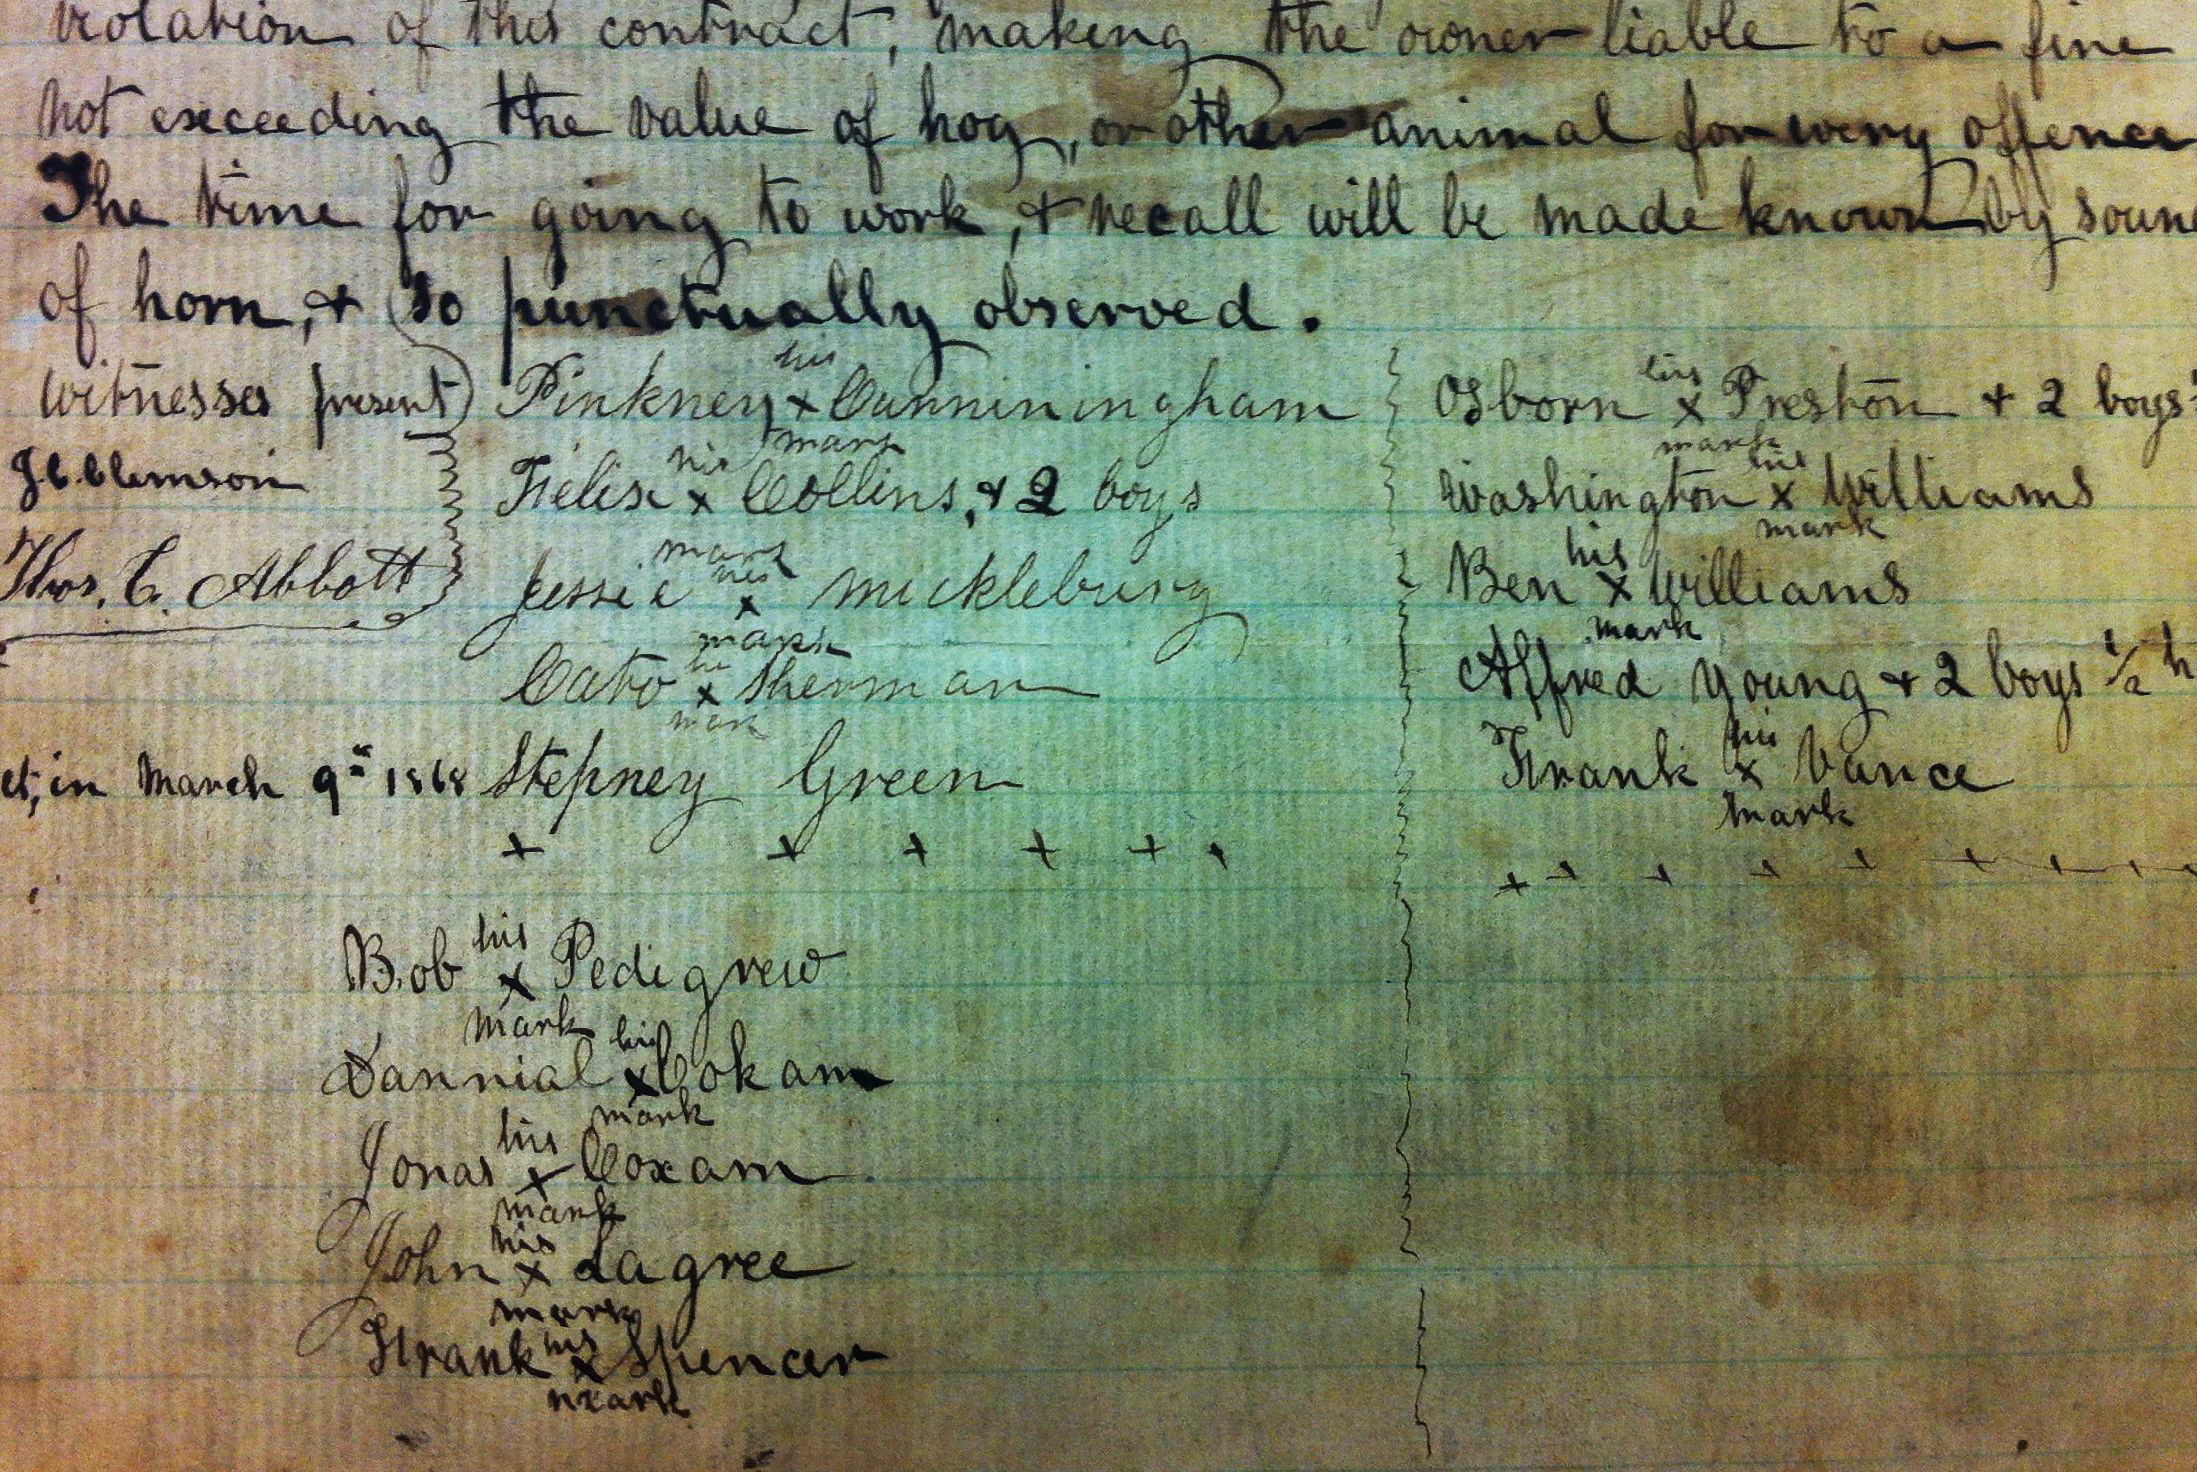 violation of this contract, making the owner liable to a fine
not exceeding the value of hog, or other animal for every offence
The time for going to work, & recall will be made known by soun
of horn, & so punctually observed.
Witnesses present
J. C. Clemson
Thos. C. Abbott
in March 9" 1868
his
Pinkney x Cunniningham
mark
his
Felix x Collins, & 2 boys
mark
his
Jessie x Mickleburg
mark
Cato x Sherman
mark
Stepney Green
+ + + + + +
his
Osborn x Preston & 2 boys
mark
his
Washington x Williams
mark
his
Ben x Williams
mark
Alfred Young & 2 boys 1/2 h
his
Frank x Vance
mark
+ + + + + + + + +
his
Bob x Pedigrew
mark
his
Dannial x Cokam
mark
his
Jonas x Coxam
mark
his
John x Lagree
mark
his
Frank x Spencer
mark